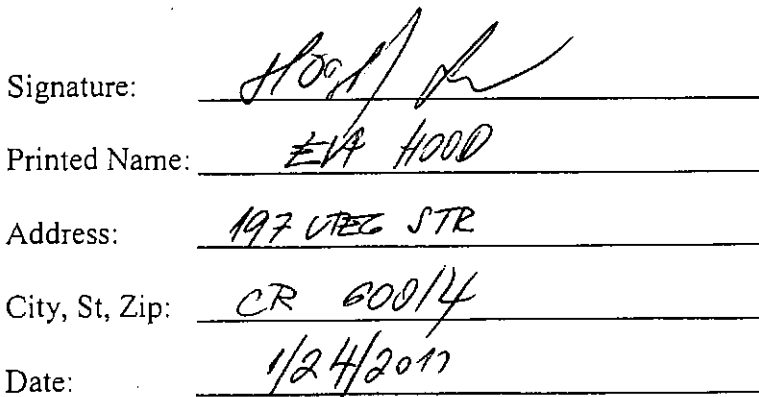 Signature:
Printed Name: EVA HOOD
Address: 197 UTEG STR
City, St, Zip: CR 60014
Date: 1/24/2017